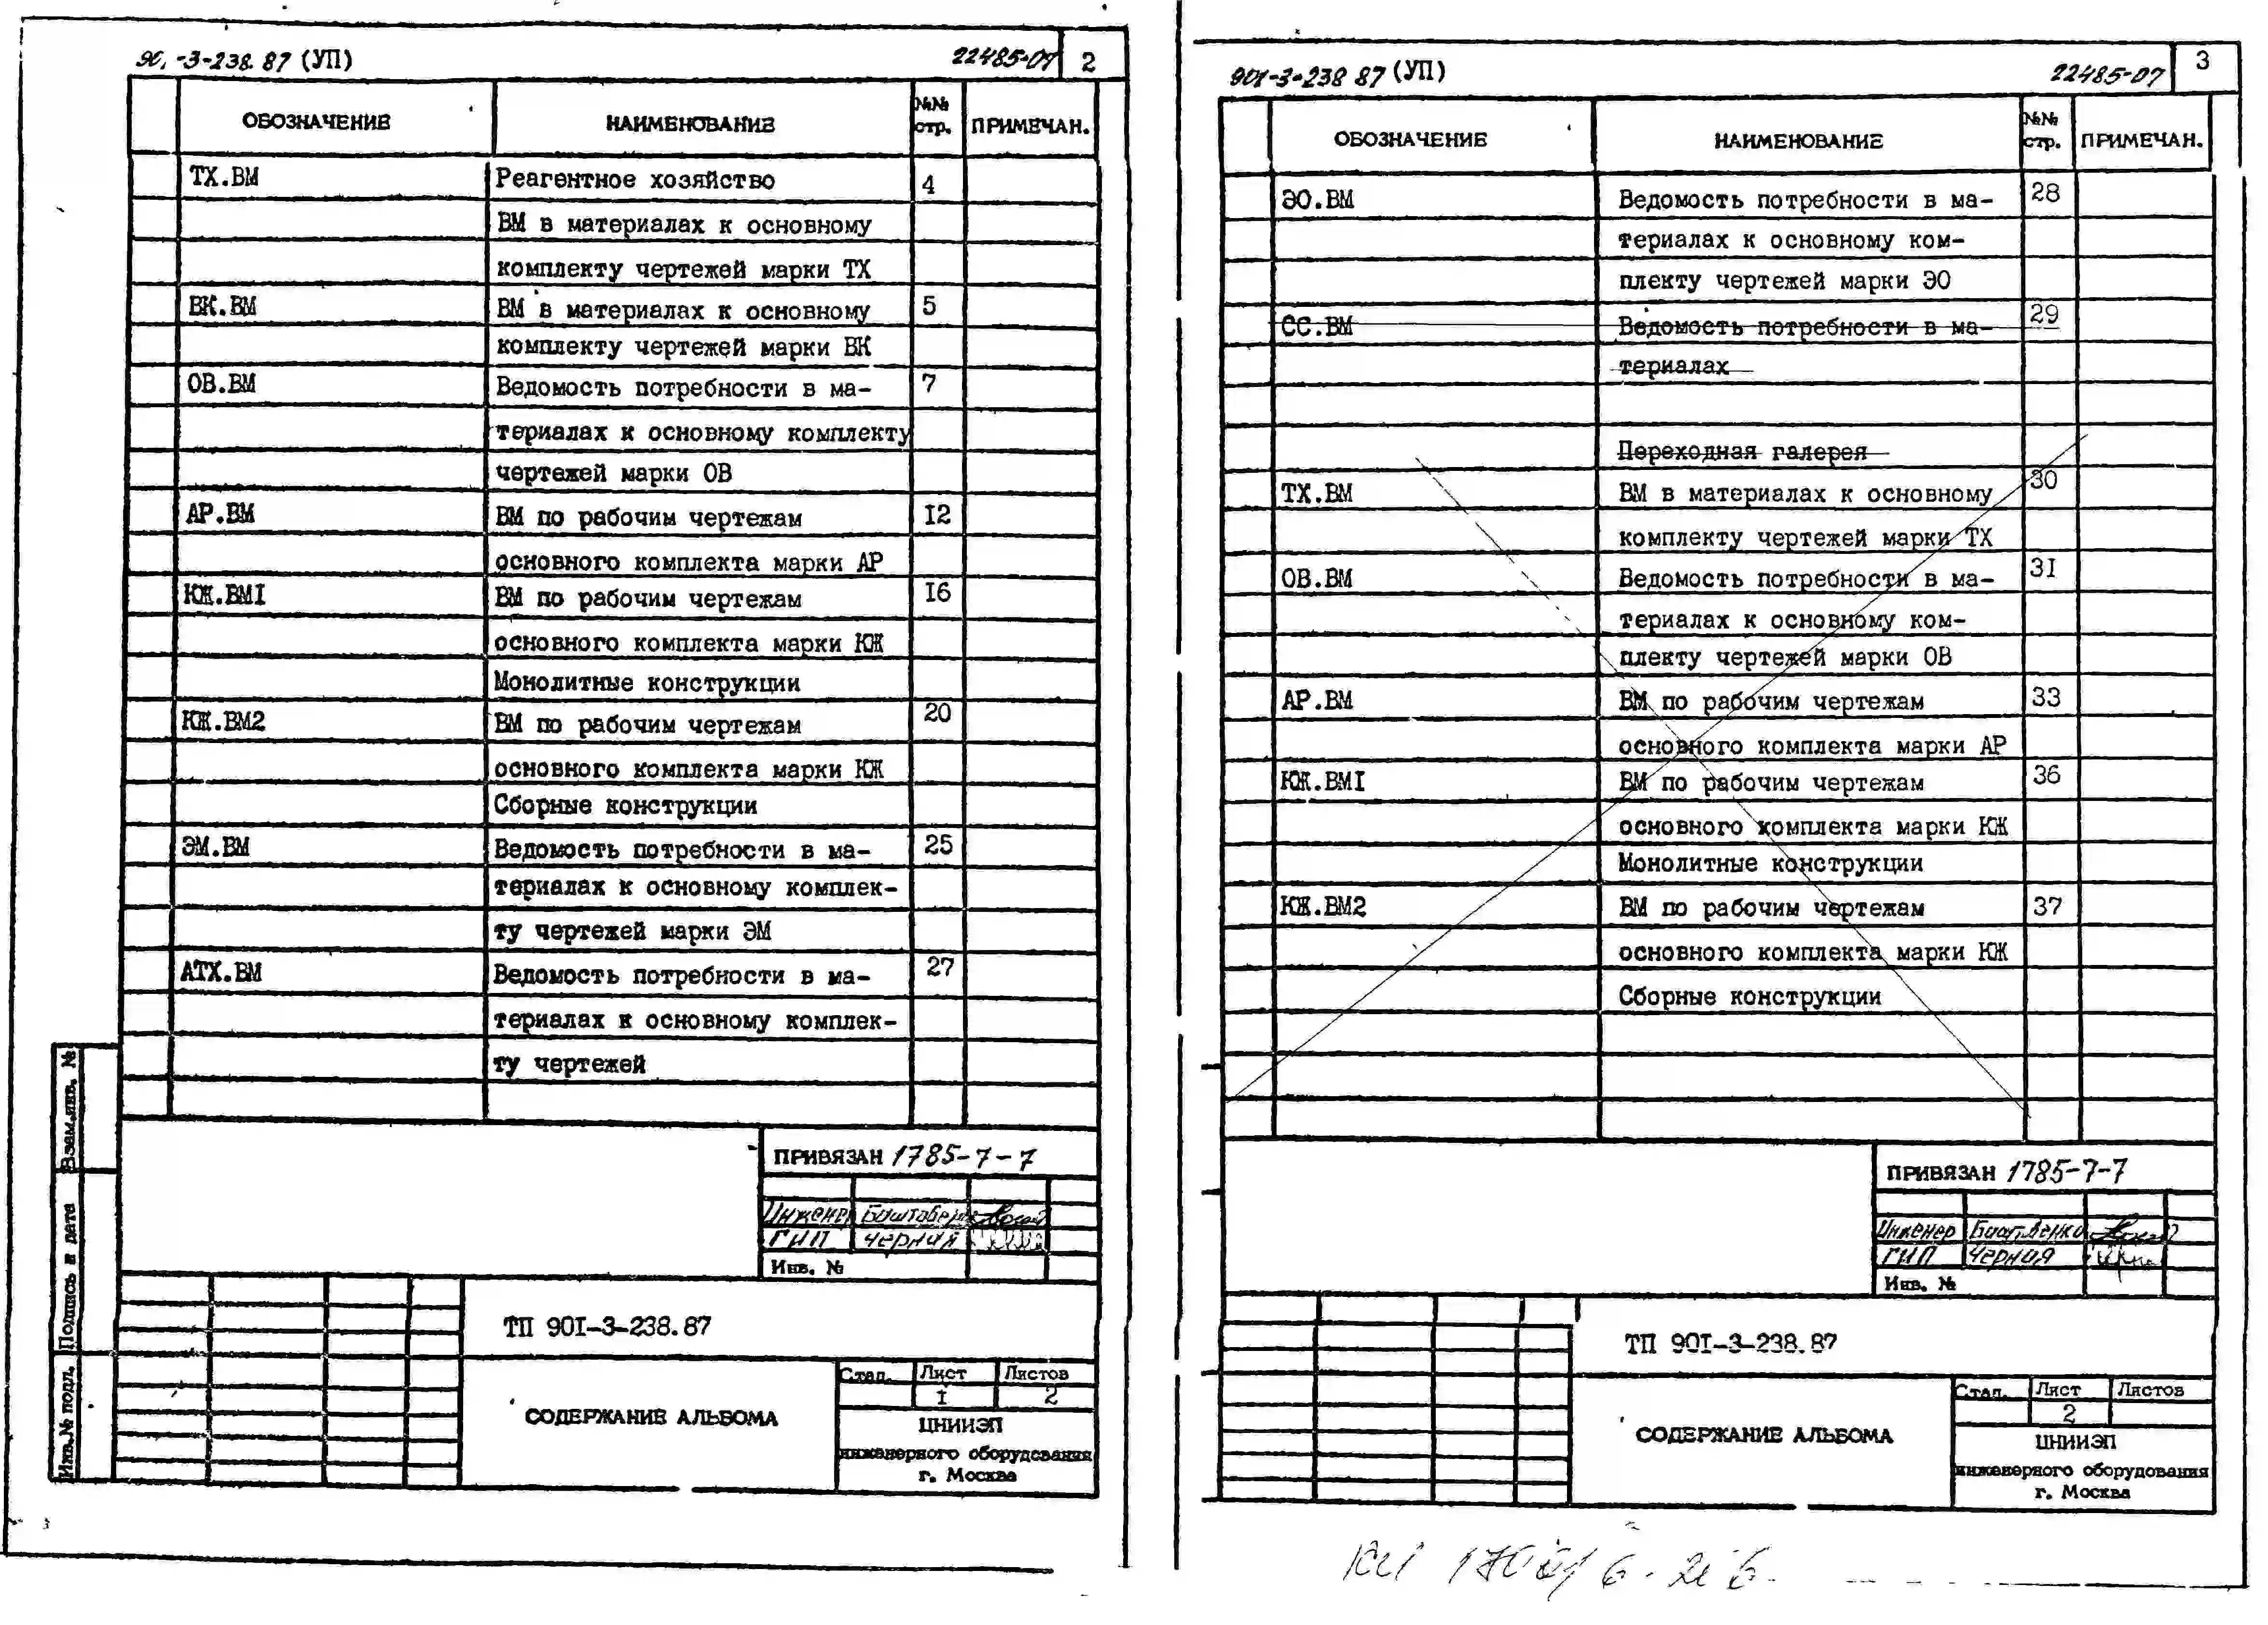 90 -3-238.87 (УП) 22485-07 2
ОБОЗНАЧЕНИЕ НАИМЕНОВАНИЕ №№ стр. ПРИМЕЧАН.
ТХ.ВМ Реагентное хозяйство 4
ВМ в материалах к основному
комплекту чертежей марки ТХ
ВК.ВМ ВМ в материалах к основному 5
комплекту чертежей марки ВК
ОВ.ВМ Ведомость потребности в ма- 7
териалах к основному комплекту
чертежей марки ОВ
АР.ВМ ВМ по рабочим чертежам 12
основного комплекта марки АР
КЖ.ВМ1 ВМ по рабочим чертежам 16
основного комплекта марки КЖ
Монолитные конструкции
КЖ.ВМ2 ВМ по рабочим чертежам 20
основного комплекта марки КЖ
Сборные конструкции
ЭМ.ВМ Ведомость потребности в ма- 25
териалах к основному комплек-
ту чертежей марки ЭМ
АТХ.ВМ Ведомость потребности в ма- 27
териалах к основному комплек-
ту чертежей
Взам.инв. №
Подпись и дата
Инв.№ подл.
ПРИВЯЗАН 1785-7-7
Инженер
ГИП Черная
Инв. №
ТП 901-3-238.87
СОДЕРЖАНИЕ АЛЬБОМА
Стад. Лист Листов
1 2
ЦНИИЭП
инженерного оборудования
г. Москва
901-3-238 87 (УП) 22485-07 3
ОБОЗНАЧЕНИЕ НАИМЕНОВАНИЕ №№ стр. ПРИМЕЧАН.
ЭО.ВМ Ведомость потребности в ма- 28
териалах к основному ком-
плекту чертежей марки ЭО
СС.ВМ Ведомость потребности в ма- 29
териалах
Переходная галерея
ТХ.ВМ ВМ в материалах к основному 30
комплекту чертежей марки ТХ
ОВ.ВМ Ведомость потребности в ма- 31
териалах к основному ком-
плекту чертежей марки ОВ
АР.ВМ ВМ по рабочим чертежам 33
основного комплекта марки АР
КЖ.ВМ1 ВМ по рабочим чертежам 36
основного комплекта марки КЖ
Монолитные конструкции
КЖ.ВМ2 ВМ по рабочим чертежам 37
основного комплекта марки КЖ
Сборные конструкции
ПРИВЯЗАН 1785-7-7
Инженер
ГИП Черная
Инв. №
ТП 901-3-238.87
СОДЕРЖАНИЕ АЛЬБОМА
Стад. Лист Листов
2
ЦНИИЭП
инженерного оборудования
г. Москва